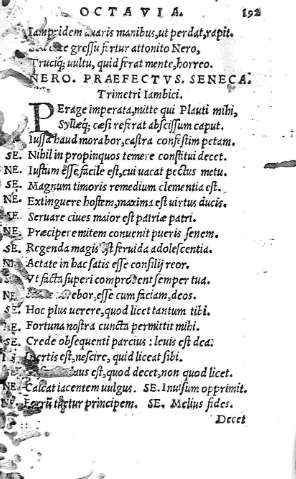 OCTAVIA. 192
Iampridem auaris manibus, ut perdat, rapit.
gressu fertur attonito Nero,
Truciq; uultu, quid ferat mente, horreo.
NERO. PRAEFECTVS. SENECA.
Trimetri Iambici.
PErage imperata, mitte qui Plauti mihi,
Syllæq; cæsi referat abscissum caput.
Iussa haud morabor, castra confestim petam.
SE. Nihil in propinquos temere constitui decet.
NE. Iustum esse facile est, cui uacat pectus metu.
SE. Magnum timoris remedium clementia est.
NE. Extinguere hostem, maxima est uirtus ducis.
SE. Seruare ciues maior est patriæ patri.
NE. Præcipere mitem conuenit pueris senem.
SE. Regenda magis est feruida adolescentia.
Aetate in hac satis esse consilij reor.
SE. Vt facta superi comprobent semper tua.
NE. ebor, esse cum faciam, deos.
SE. Hoc plus uerere, quod licet tantum tibi.
NE. Fortuna nostra cuncta permittit mihi.
SE. Crede obsequenti parcius: leuis est dea.
Inertis est, nescire, quid liceat sibi.
SE. aus est, quod decet, non quod licet.
NE. Calcat iacentem uulgus. SE. Inuisum opprimit.
NE. Ferrū tuetur principem. SE. Melius fides.
Decet